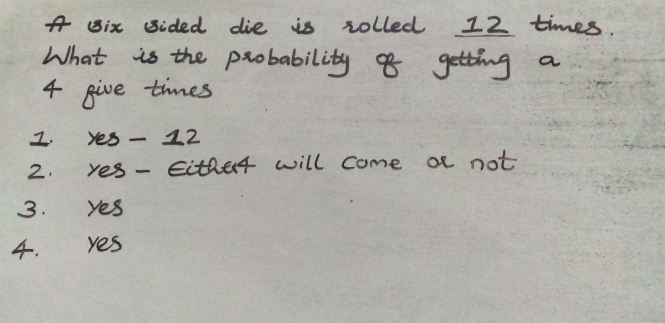 A six sided die is rolled 12 times.
What is the probability of getting a
4 five times
1. Yes - 12
2. Yes - Either 4 will come or not
3. Yes
4. Yes